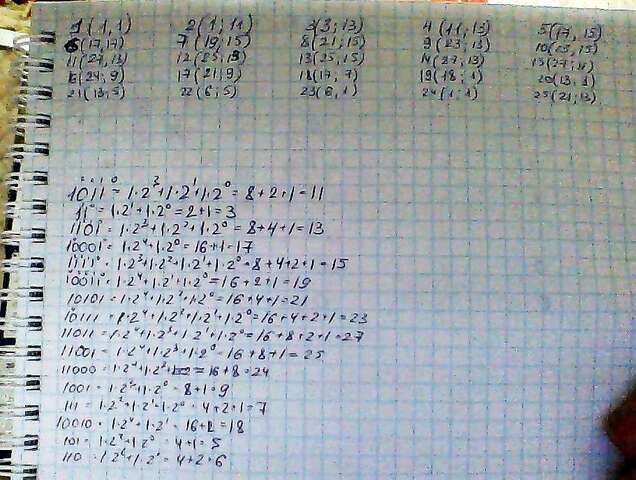 1 (1, 1) 2 (1; 11) 3 (3; 13) 4 (11, 13) 5 (17, 15)
6 (17, 17) 7 (19, 15) 8 (21; 15) 9 (23; 13) 10 (25, 15)
11 (27, 13) 12 (25, 13) 13 (25, 15) 14 (27; 13) 15 (27; 11)
16 (24; 9) 17 (21; 9) 18 (17; 7) 19 (18; 1) 20 (13; 3)
21 (13; 5) 22 (6; 5) 23 (6, 1) 24 (1; 1) 25 (21; 13)
1011 = 1·2³+1·2¹+1·2⁰ = 8+2+1=11
11 = 1·2¹+1·2⁰ = 2+1=3
1101 = 1·2³+1·2²+1·2⁰ = 8+4+1=13
10001 = 1·2⁴+1·2⁰ = 16+1=17
1111 = 1·2³+1·2²+1·2¹+1·2⁰ = 8+4+2+1=15
10011 = 1·2⁴+1·2¹+1·2⁰ = 16+2+1=19
10101 = 1·2⁴+1·2²+1·2⁰ = 16+4+1=21
10111 = 1·2⁴+1·2²+1·2¹+1·2⁰ = 16+4+2+1=23
11011 = 1·2⁴+1·2³+1·2¹+1·2⁰ = 16+8+2+1=27
11001 = 1·2⁴+1·2³+1·2⁰ = 16+8+1=25
11000 = 1·2⁴+1·2³ = 16+8=24
1001 = 1·2³+1·2⁰ = 8+1=9
111 = 1·2²+1·2¹+1·2⁰ = 4+2+1=7
10010 = 1·2⁴+1·2¹ = 16+2=18
101 = 1·2²+1·2⁰ = 4+1=5
110 = 1·2²+1·2¹ = 4+2=6